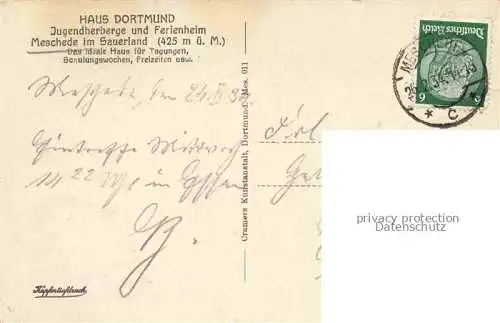 HAUS DORTMUND
Jugendherberge und Ferienheim
Meschede im Sauerland (425 m ü. M.)
Das ideale Haus für Tagungen,
Schulungswochen, Freizeiten usw.
Meschede, den 24.
Mittwoch
14 22 Uhr in Essen
Kupfertiefdruck
Cramers Kunstanstalt, Dortmund. Mes. 011
Deutsches Reich
6 6
MESCHEDE
* C
privacy protection
Datenschutz